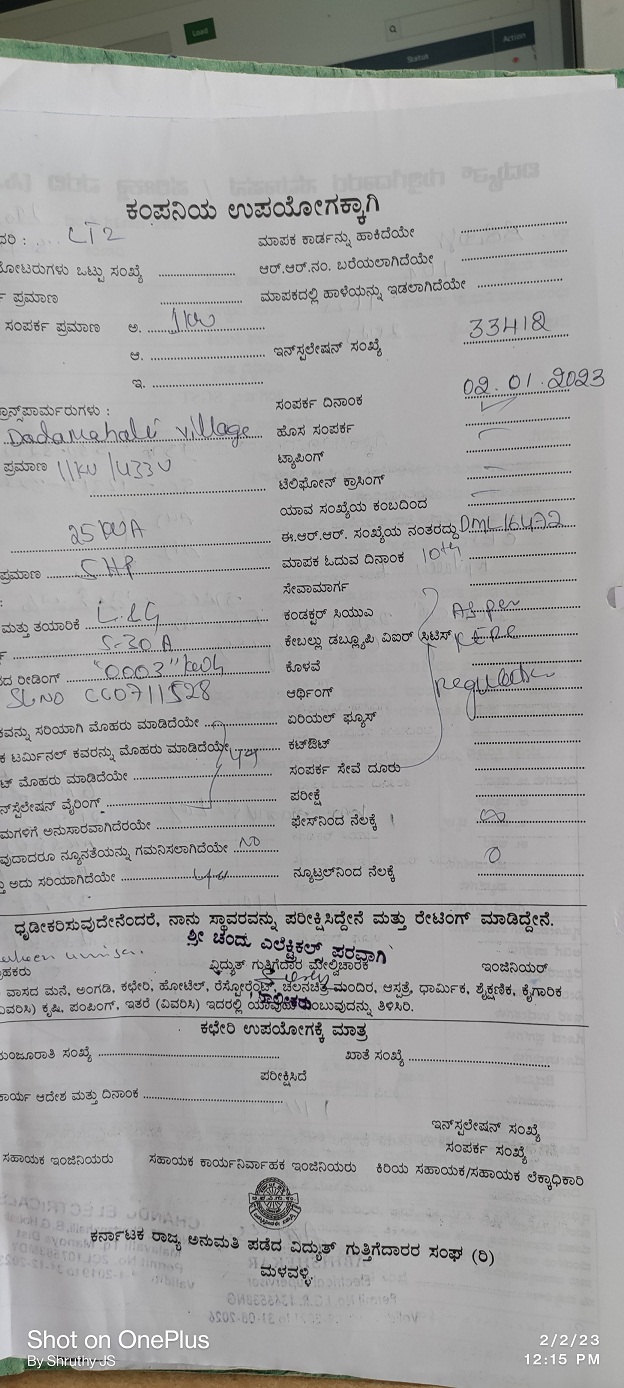 Load
Status
Action
ಕಂಪನಿಯ ಉಪಯೋಗಕ್ಕಾಗಿ
ದರಿ : LT2 ಮಾಪಕ ಕಾರ್ಡನ್ನು ಹಾಕಿದೆಯೇ
ಮೋಟರುಗಳು ಒಟ್ಟು ಸಂಖ್ಯೆ ಆರ್.ಆರ್.ನಂ. ಬರೆಯಲಾಗಿದೆಯೇ
ಪ್ರಮಾಣ ಮಾಪಕದಲ್ಲಿ ಹಾಳೆಯನ್ನು ಇಡಲಾಗಿದೆಯೇ
ಸಂಪರ್ಕ ಪ್ರಮಾಣ ಅ. 1KW
ಆ. ಇನ್‌ಸ್ಟಲೇಷನ್ ಸಂಖ್ಯೆ 33412
ಇ.
ಸಂಪರ್ಕ ದಿನಾಂಕ 02.01.2023
ಟ್ರಾನ್ಸ್‌ಫಾರ್ಮರುಗಳು :
Dadamahali village ಹೊಸ ಸಂಪರ್ಕ
ಪ್ರಮಾಣ 11KV/433V ಟ್ಯಾಪಿಂಗ್
ಟೆಲಿಫೋನ್ ಕ್ರಾಸಿಂಗ್
ಯಾವ ಸಂಖ್ಯೆಯ ಕಂಬದಿಂದ
25KVA ಈ.ಆರ್.ಆರ್. ಸಂಖ್ಯೆಯ ನಂತರದ್ದು DML16472
ಪ್ರಮಾಣ ಮಾಪಕ ಓದುವ ದಿನಾಂಕ 10th
ಸೇವಾಮಾರ್ಗ
ಮತ್ತು ತಯಾರಿಕೆ L&G ಕಂಡಕ್ಟರ್ ಸಿಯುಎ As per
5-30A ಕೇಬಲ್ಲು ಡಬ್ಲ್ಯೂಪಿ ವಿಐಆರ್ KERC
ರೀಡಿಂಗ್ "0003" kwh ಕೊಳವೆ
SL NO CC0711528 ಆರ್ಥಿಂಗ್ regulation
ಸರಿಯಾಗಿ ಮೊಹರು ಮಾಡಿದೆಯೇ ಏರಿಯಲ್ ಫ್ಯೂಸ್
ಟರ್ಮಿನಲ್ ಕವರನ್ನು ಮೊಹರು ಮಾಡಿದೆಯೇ ಕಟ್‌ಔಟ್
ಮೊಹರು ಮಾಡಿದೆಯೇ ಸಂಪರ್ಕ ಸೇವೆ ದೂರು
ವೈರಿಂಗ್ ಪರೀಕ್ಷೆ
ಅನುಸಾರವಾಗಿದೆಯೇ ಫೇಸ್‌ನಿಂದ ನೆಲಕ್ಕೆ ∞
ನ್ಯೂನತೆಯನ್ನು ಗಮನಿಸಲಾಗಿದೆಯೇ NO
ಅದು ಸರಿಯಾಗಿದೆಯೇ ನ್ಯೂಟ್ರಲ್‌ನಿಂದ ನೆಲಕ್ಕೆ 0
ಧೃಡೀಕರಿಸುವುದೇನೆಂದರೆ, ನಾನು ಸ್ಥಾವರವನ್ನು ಪರೀಕ್ಷಿಸಿದ್ದೇನೆ ಮತ್ತು ರೇಟಿಂಗ್ ಮಾಡಿದ್ದೇನೆ.
ಶ್ರೀ ಚಂದು ಎಲೆಕ್ಟ್ರಿಕಲ್ಸ್ ಪರವಾಗಿ
ವಿದ್ಯುತ್ ಗುತ್ತಿಗೆದಾರ ಮೇಲ್ವಿಚಾರಕ ಇಂಜಿನಿಯರ್
ವಾಸದ ಮನೆ, ಅಂಗಡಿ, ಕಛೇರಿ, ಹೋಟೆಲ್, ರೆಸ್ಟೋರೆಂಟ್, ಚಲನಚಿತ್ರ ಮಂದಿರ, ಆಸ್ಪತ್ರೆ, ಧಾರ್ಮಿಕ, ಶೈಕ್ಷಣಿಕ, ಕೈಗಾರಿಕ
ಕೃಷಿ, ಪಂಪಿಂಗ್, ಇತರೆ (ವಿವರಿಸಿ) ಇದರಲ್ಲಿ ತಿಳಿಸಿರಿ.
ಕಛೇರಿ ಉಪಯೋಗಕ್ಕೆ ಮಾತ್ರ
ಮಂಜೂರಾತಿ ಸಂಖ್ಯೆ ಖಾತೆ ಸಂಖ್ಯೆ
ಪರೀಕ್ಷಿಸಿದೆ
ಕಾರ್ಯ ಆದೇಶ ಮತ್ತು ದಿನಾಂಕ
ಇನ್‌ಸ್ಟಲೇಷನ್ ಸಂಖ್ಯೆ
ಸಂಪರ್ಕ ಸಂಖ್ಯೆ
ಸಹಾಯಕ ಇಂಜಿನಿಯರು ಸಹಾಯಕ ಕಾರ್ಯನಿರ್ವಾಹಕ ಇಂಜಿನಿಯರು ಕಿರಿಯ ಸಹಾಯಕ/ಸಹಾಯಕ ಲೆಕ್ಕಾಧಿಕಾರಿ
ಕರ್ನಾಟಕ ರಾಜ್ಯ ಅನುಮತಿ ಪಡೆದ ವಿದ್ಯುತ್ ಗುತ್ತಿಗೆದಾರರ ಸಂಘ (ರಿ)
ಮಳವಳ್ಳಿ
Shot on OnePlus
By Shruthy JS
2/2/23
12:15 PM